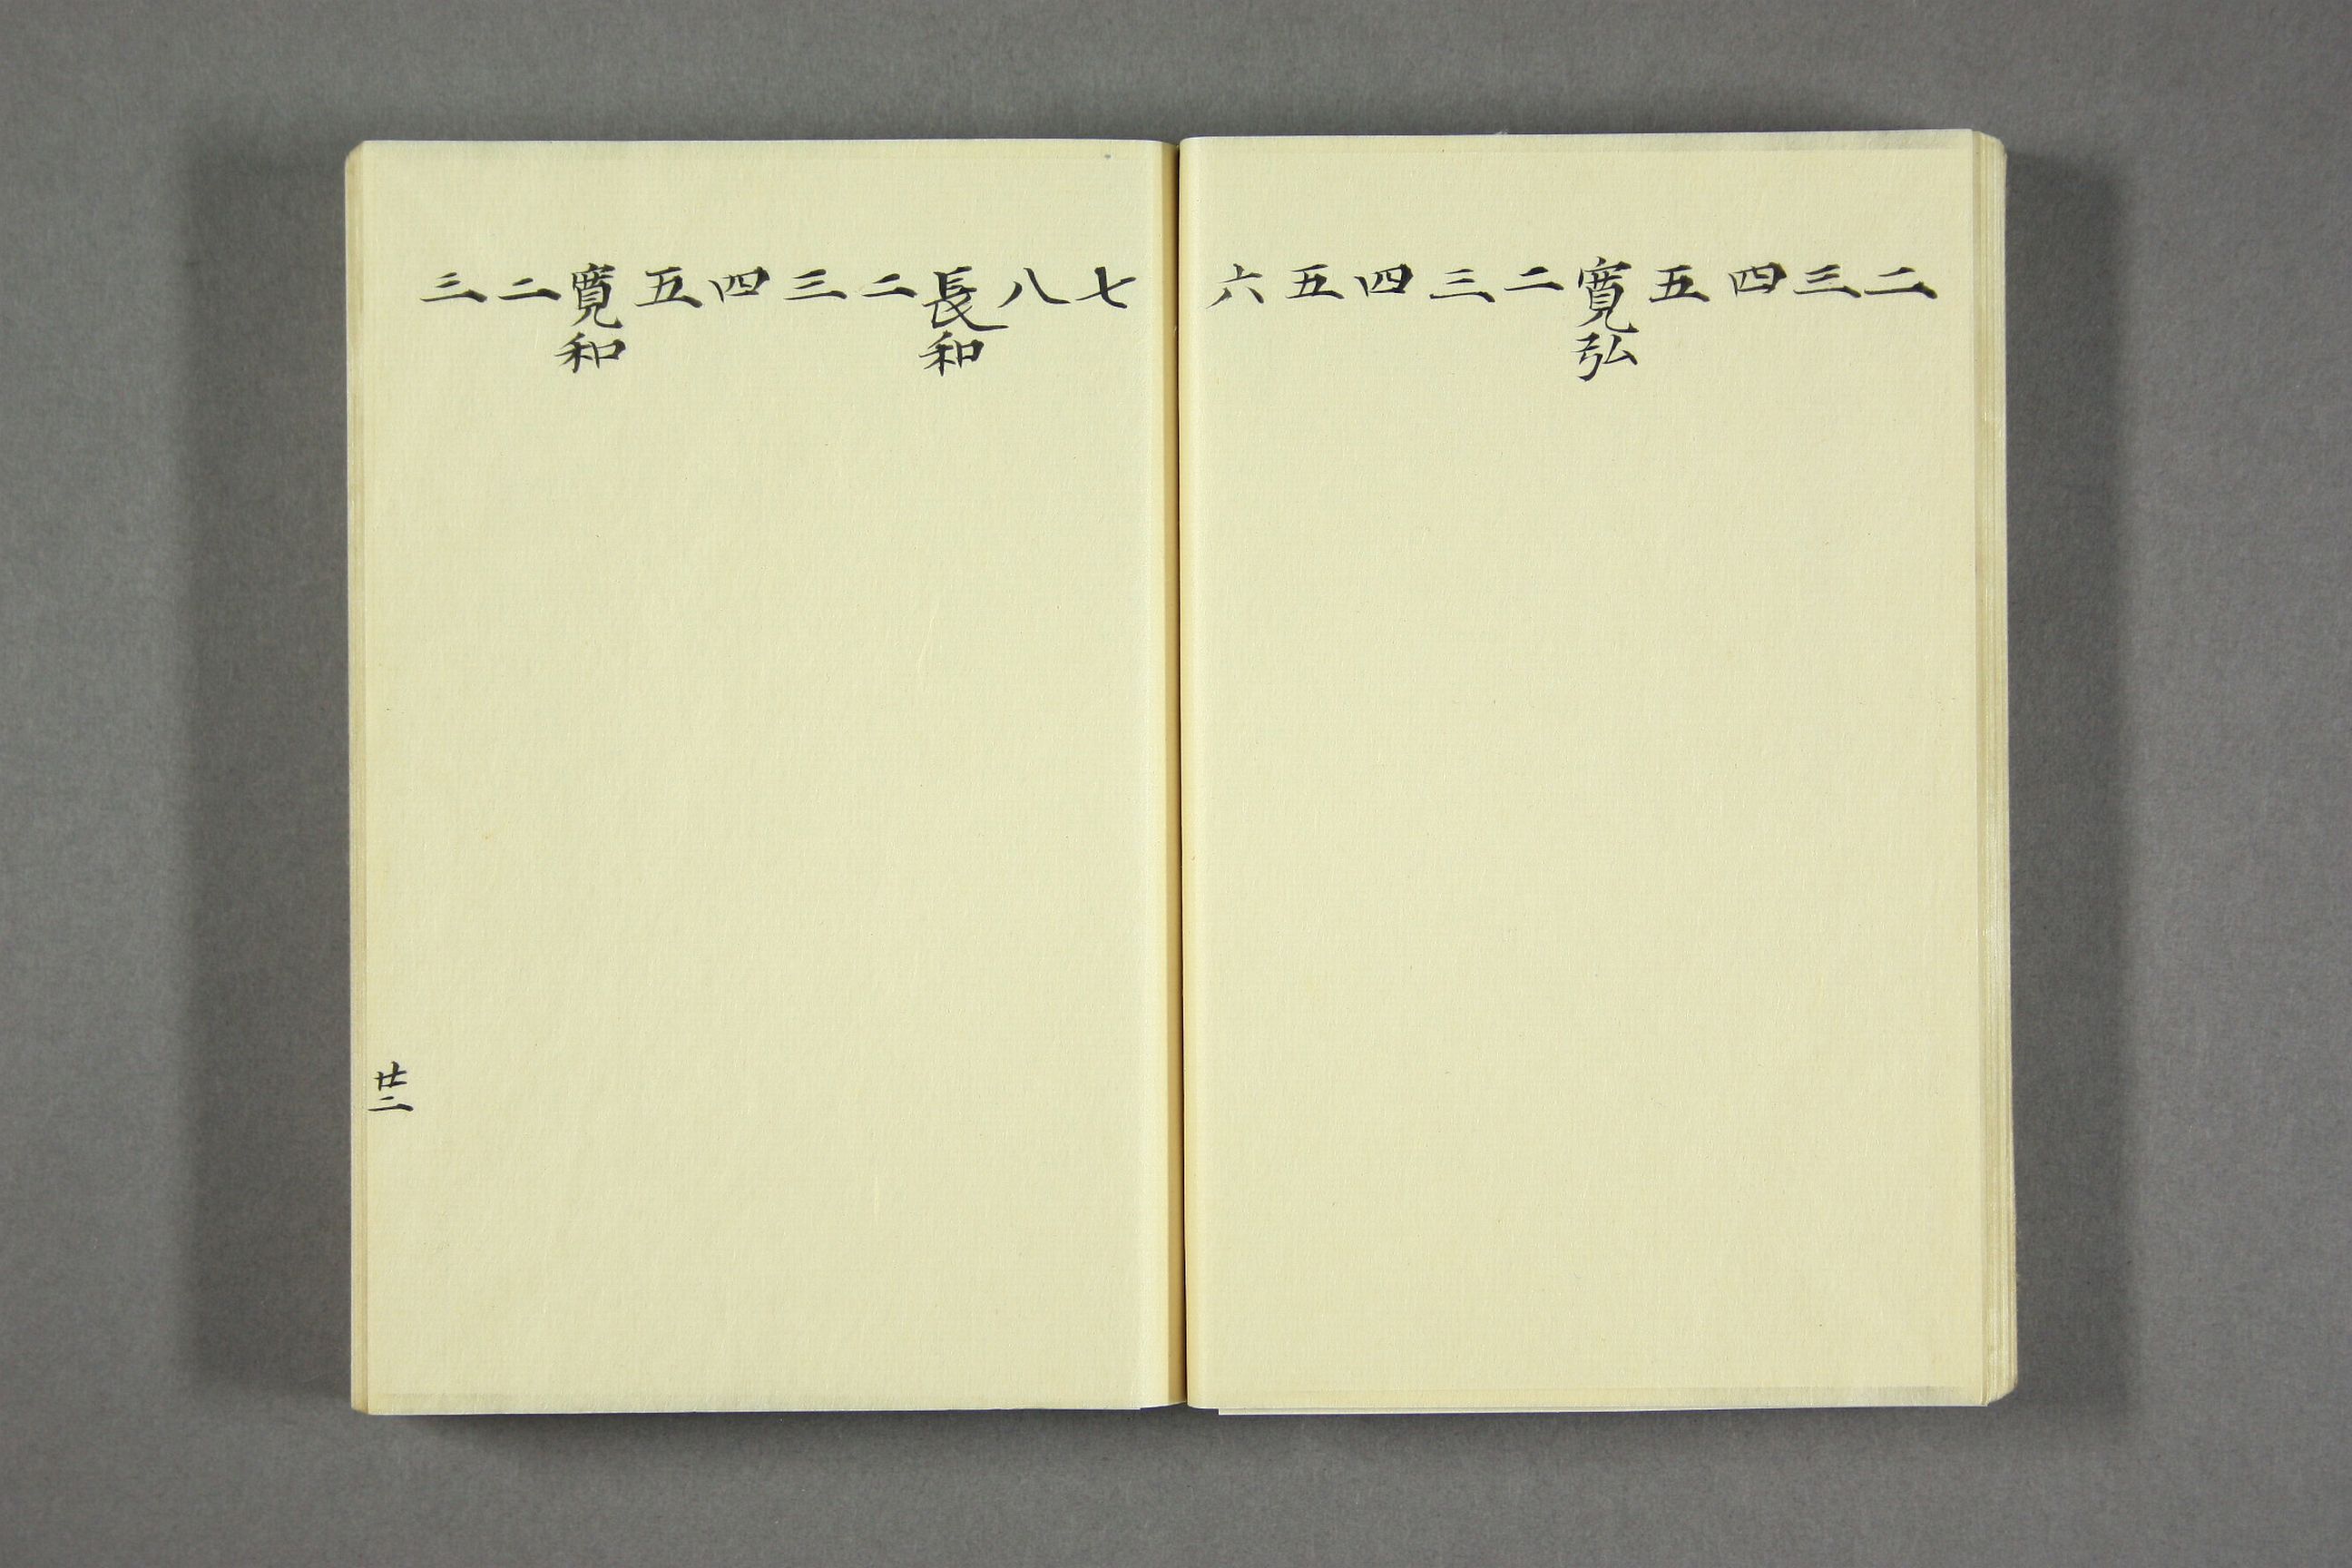 二
三
四
五
寛弘
二
三
四
五
六
七
八
長和
二
三
四
五
寛和
二
三
廿二